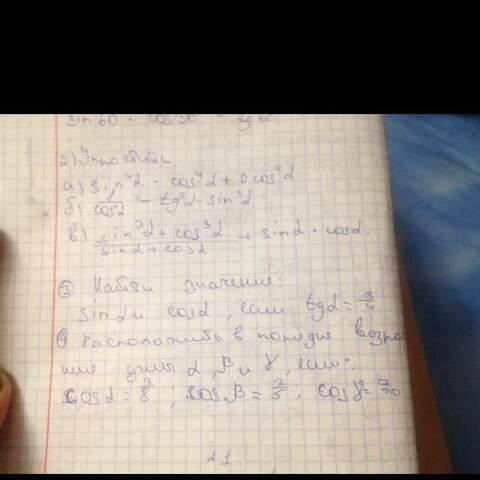 sin 60 · cos 30 - tg
2) Упростить
а) sin⁴α - cos⁴α + 2cos²α
б) cosα - tg²α - sin²α
в) sin³α + cos³α / sinα + cosα + sinα · cosα.
③ Найти значение:
sinα и cosα, если tgα = 3/4
④ Расположить в порядке возра-
ние углы α, β и γ, если:
cosα = 7/8 ; cosβ = 2/5 ; cosγ =
№ 1